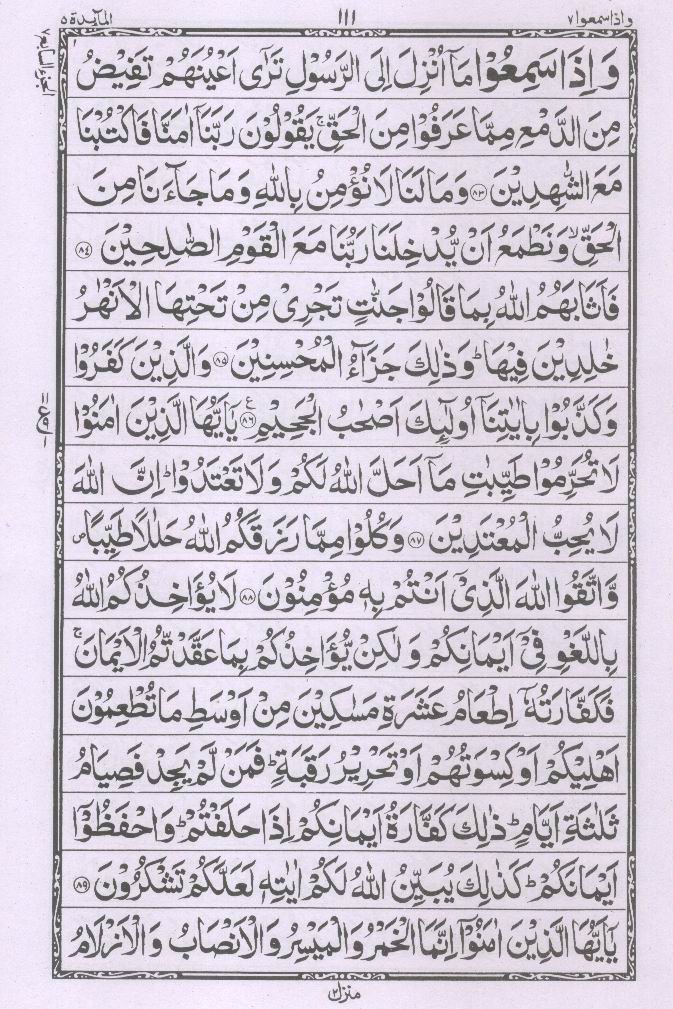 المآىدة ٥ ١١١ واذاسمعوا ٧
وَاِذَا سَمِعُوْا مَآ اُنْزِلَ اِلَى الرَّسُوْلِ تَرٰٓى اَعْيُنَهُمْ تَفِيْضُ
مِنَ الدَّمْعِ مِمَّا عَرَفُوْا مِنَ الْحَقِّ ۚ يَقُوْلُوْنَ رَبَّنَآ اٰمَنَّا فَاكْتُبْنَا
مَعَ الشّٰهِدِيْنَ ﴿٨٣﴾ وَمَا لَنَا لَا نُؤْمِنُ بِاللّٰهِ وَمَا جَآءَنَا مِنَ
الْحَقِّ ۙ وَنَطْمَعُ اَنْ يُّدْخِلَنَا رَبُّنَا مَعَ الْقَوْمِ الصّٰلِحِيْنَ ﴿٨٤﴾
فَاَثَابَهُمُ اللّٰهُ بِمَا قَالُوْا جَنّٰتٍ تَجْرِىْ مِنْ تَحْتِهَا الْاَنْهٰرُ
خٰلِدِيْنَ فِيْهَا ؕ وَذٰلِكَ جَزَآءُ الْمُحْسِنِيْنَ ﴿٨٥﴾ وَالَّذِيْنَ كَفَرُوْا
وَكَذَّبُوْا بِاٰيٰتِنَآ اُولٰٓئِكَ اَصْحٰبُ الْجَحِيْمِ ﴿٨٦﴾ ع يٰٓاَيُّهَا الَّذِيْنَ اٰمَنُوْا
لَا تُحَرِّمُوْا طَيِّبٰتِ مَآ اَحَلَّ اللّٰهُ لَكُمْ وَلَا تَعْتَدُوْا ؕ اِنَّ اللّٰهَ
لَا يُحِبُّ الْمُعْتَدِيْنَ ﴿٨٧﴾ وَكُلُوْا مِمَّا رَزَقَكُمُ اللّٰهُ حَلٰلًا طَيِّبًا ۪
وَّاتَّقُوا اللّٰهَ الَّذِىْٓ اَنْتُمْ بِهٖ مُؤْمِنُوْنَ ﴿٨٨﴾ لَا يُؤَاخِذُكُمُ اللّٰهُ
بِاللَّغْوِ فِىْٓ اَيْمَانِكُمْ وَلٰكِنْ يُّؤَاخِذُكُمْ بِمَا عَقَّدْتُّمُ الْاَيْمَانَ ۚ
فَكَفَّارَتُهٗٓ اِطْعَامُ عَشَرَةِ مَسٰكِيْنَ مِنْ اَوْسَطِ مَا تُطْعِمُوْنَ
اَهْلِيْكُمْ اَوْ كِسْوَتُهُمْ اَوْ تَحْرِيْرُ رَقَبَةٍ ؕ فَمَنْ لَّمْ يَجِدْ فَصِيَامُ
ثَلٰثَةِ اَيَّامٍ ؕ ذٰلِكَ كَفَّارَةُ اَيْمَانِكُمْ اِذَا حَلَفْتُمْ ؕ وَاحْفَظُوْٓا
اَيْمَانَكُمْ ؕ كَذٰلِكَ يُبَيِّنُ اللّٰهُ لَكُمْ اٰيٰتِهٖ لَعَلَّكُمْ تَشْكُرُوْنَ ﴿٨٩﴾
يٰٓاَيُّهَا الَّذِيْنَ اٰمَنُوْٓا اِنَّمَا الْخَمْرُ وَالْمَيْسِرُ وَالْاَنْصَابُ وَالْاَزْلَامُ
منزل ٢